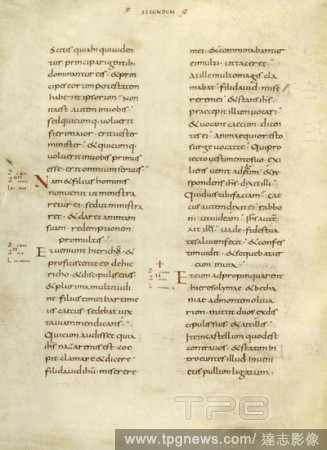 SECUNDUM
Scitis quia hi qui uiden
tur principari gentib;
dominantur eis & prin
cipes eorum potestatem
habent ipsorum Non
ita est autem in uobis
sed quicumq; uoluerit
fieri maior erit uester
minister & quicumq;
uoluerit in uobis primus
esse erit omnium seruus
Nam & filius hominis
non uenit ut ministra
retur ei sed ut ministra
ret & daret animam
suam redemptionem
pro multis
Et ueniunt hiericho &
proficiscente eo de hie
richo & discipulis eius
& plurima multitudi
ne filius timei bartime
us caecus sedebat iux
ta uiam mendicans
Qui cum audisset quia
ihs nazarenus est coe
pit clamare & dicere
fili dauid ihu miserere
mei & comminabantur
ei multi ut taceret
At ille multo magis cla
mabat fili dauid mise
rere mei & stans ihs
praecepit illum uocari
& uocant caecum dicen
tes ei animaequior esto
surge uocat te Qui pro
iecto uestimento suo exi
liens uenit ad eum & re
spondens ihs dixit illi
Quid uis tibi faciam cae
cus autem dixit ei rabbo
ni ut uideam ihs autem
ait illi uade fides tua
te saluum fecit & confes
tim uidit & sequebatur
eum in uia
Et cum adpropinquarent
hierosolymae & betha
niae ad montem oliua
rum mittit duos ex dis
cipulis suis & ait illis
ite in castellum quod est
contra uos & statim in
troeuntes illud inueni
etis pullum ligatum
TPG
www.tpgnews.com / 達志影像